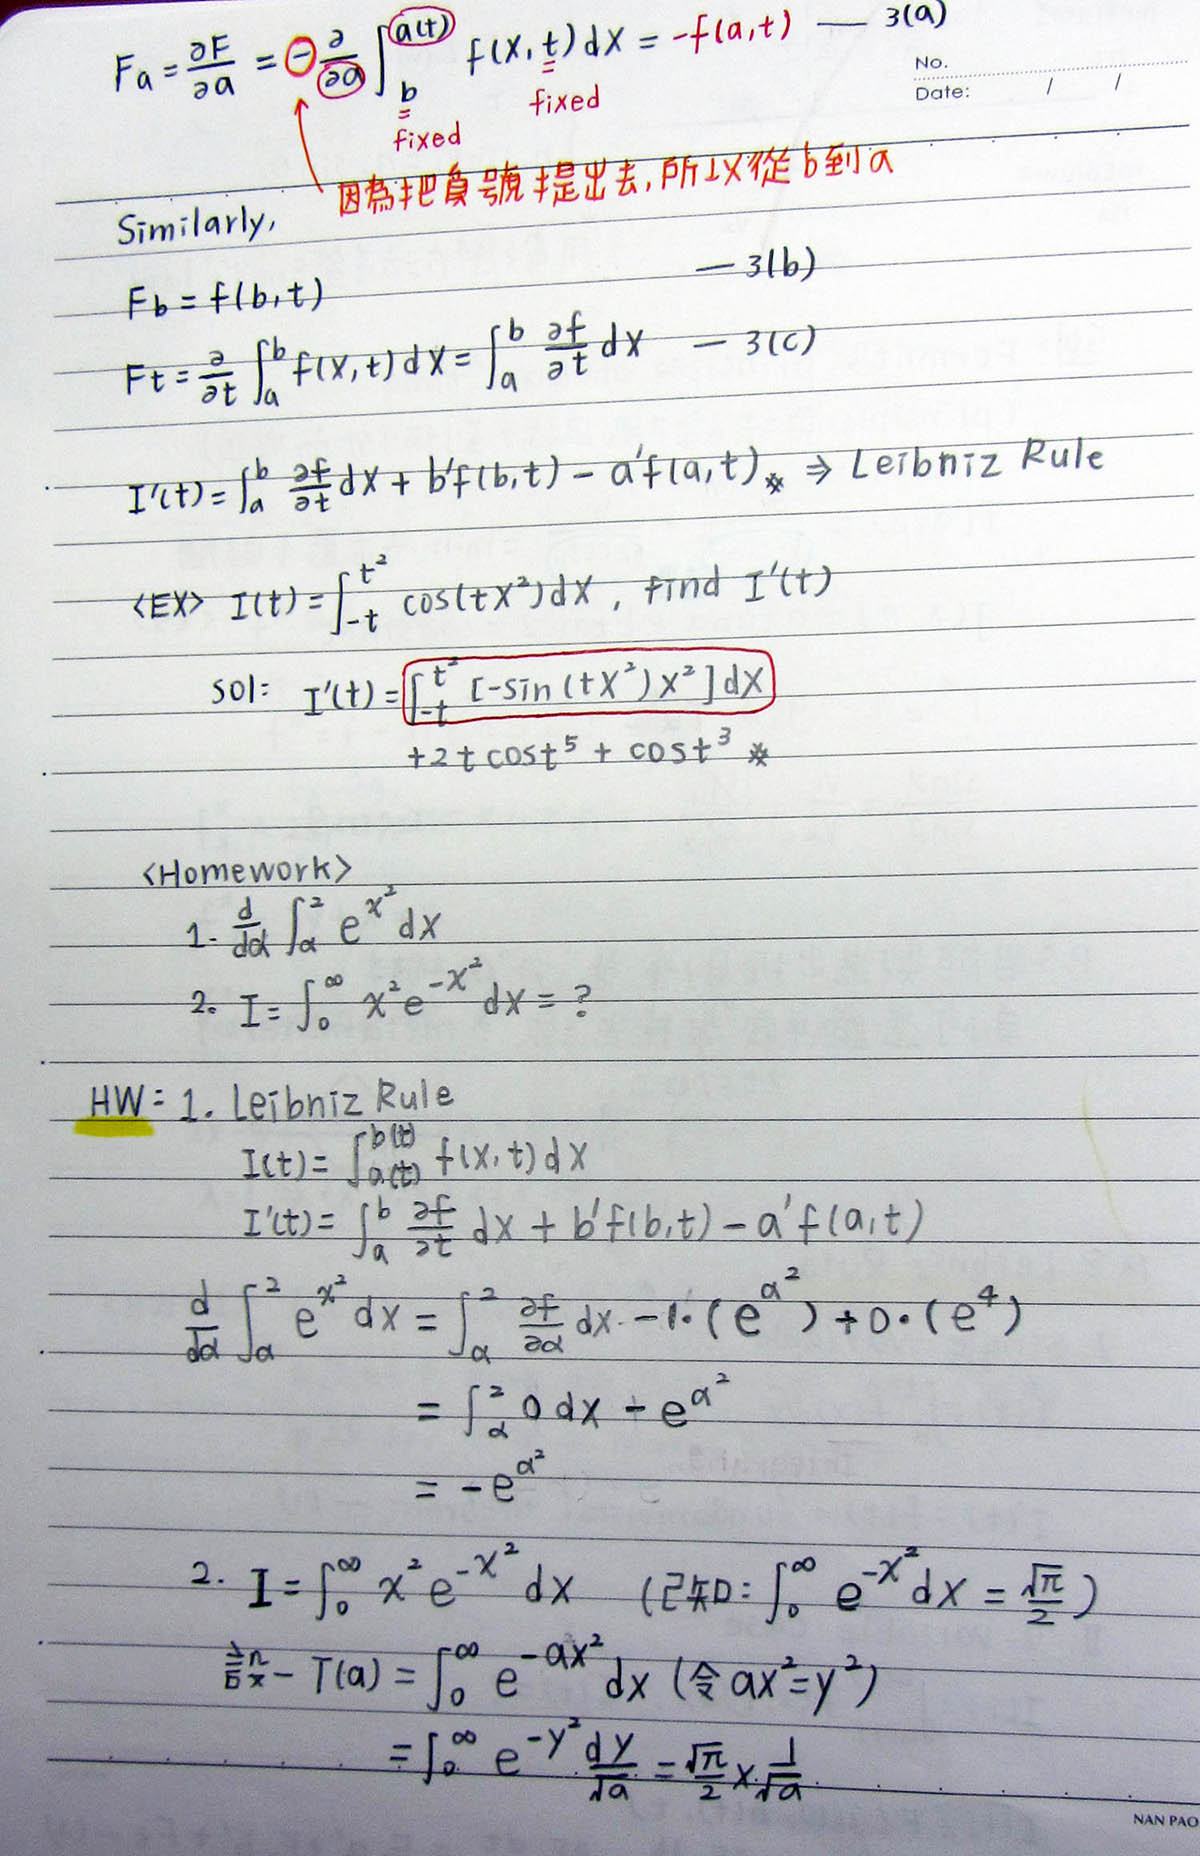 Fa = ∂F/∂a = - ∂/∂a ∫_b^{a(t)} f(x,t)dx = -f(a,t) — 3(a)
No.
Date: / /
fixed
fixed
因為把負號提出去,所以從b到a
Similarly,
Fb = f(b,t) — 3(b)
Ft = ∂/∂t ∫_a^b f(x,t)dx = ∫_a^b ∂f/∂t dx — 3(c)
I'(t) = ∫_a^b ∂f/∂t dx + b'f(b,t) - a'f(a,t) ※ ⇒ Leibniz Rule
<EX> I(t) = ∫_{-t}^{t²} cos(tx²)dx , find I'(t)
sol: I'(t) = ∫_{-t}^{t²} [-sin(tx²)x²]dx
+2t cost⁵ + cost³ ※
<Homework>
1. d/dα ∫_α^2 e^{x²} dx
2. I = ∫_0^∞ x²e^{-x²} dx = ?
HW: 1. Leibniz Rule
I(t) = ∫_{a(t)}^{b(t)} f(x,t)dx
I'(t) = ∫_a^b ∂f/∂t dx + b'f(b,t) - a'f(a,t)
d/dα ∫_α^2 e^{x²} dx = ∫_α^2 ∂f/∂α dx - 1·(e^{α²}) + 0·(e⁴)
= ∫_α^2 0 dx - e^{α²}
= -e^{α²}
2. I = ∫_0^∞ x²e^{-x²} dx (已知: ∫_0^∞ e^{-x²} dx = √π/2)
設 - T(a) = ∫_0^∞ e^{-ax²} dx (令 ax²=y²)
= ∫_0^∞ e^{-y²} dy/√a = √π/2 × 1/√a
NAN PAO